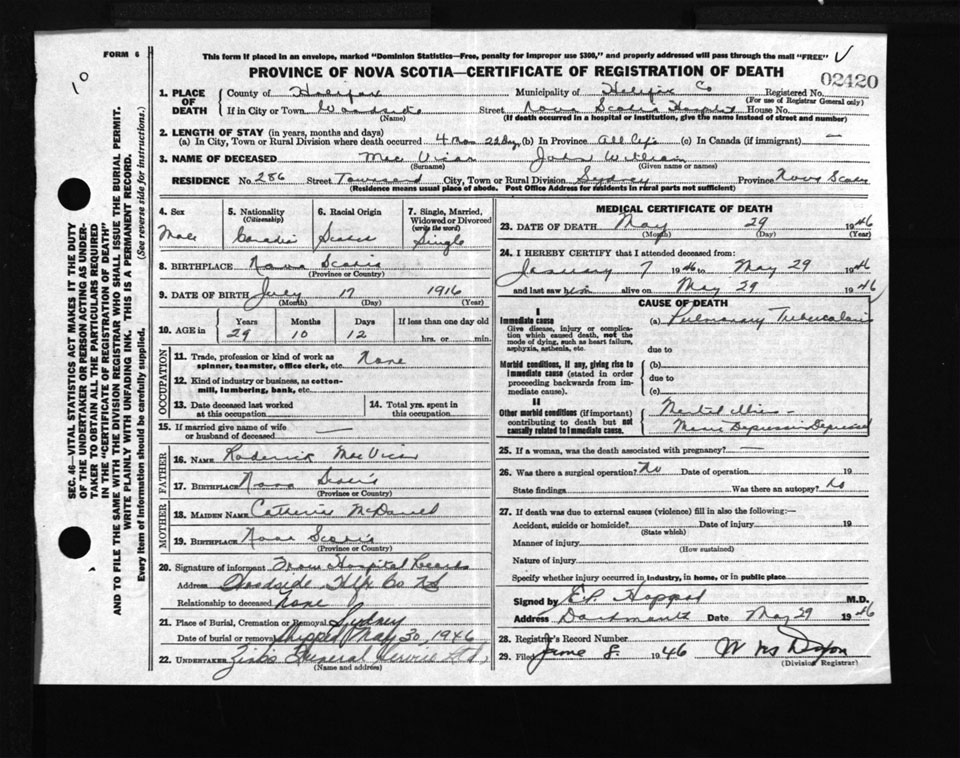 FORM 6
This form if placed in an envelope, marked "Dominion Statistics—Free, penalty for improper use $300," and properly addressed will pass through the mail "FREE"
PROVINCE OF NOVA SCOTIA—CERTIFICATE OF REGISTRATION OF DEATH
02420
1. PLACE OF DEATH
County of Halifax Municipality of Halifax Co Registered No.
(For use of Registrar General only)
If in City or Town Woodside Street Nova Scotia Hospital House No.
(Name) (If death occurred in a hospital or institution, give the name instead of street and number)
2. LENGTH OF STAY (in years, months and days)
(a) In City, Town or Rural Division where death occurred 4 Mon 22 Day (b) In Province All life (c) In Canada (if immigrant) —
3. NAME OF DECEASED Mac Vicar John William
(Surname) (Given name or names)
RESIDENCE No. 286 Street Townsend City, Town or Rural Division Sydney Province Nova Scotia
(Residence means usual place of abode. Post Office Address for residents in rural parts not sufficient)
4. Sex Male
5. Nationality (Citizenship) Canadian
6. Racial Origin Scotch
7. Single, Married, Widowed or Divorced (write the word) Single
8. BIRTHPLACE Nova Scotia
(Province or Country)
9. DATE OF BIRTH July 17 1916
(Month) (Day) (Year)
10. AGE in Years 29 Months 10 Days 12 If less than one day old hrs. or min.
OCCUPATION
11. Trade, profession or kind of work as spinner, teamster, office clerk, etc. None
12. Kind of industry or business, as cotton-mill, lumbering, bank, etc.
13. Date deceased last worked at this occupation
14. Total yrs. spent in this occupation
15. If married give name of wife or husband of deceased —
FATHER
16. NAME Roderick MacVicar
17. BIRTHPLACE Nova Scotia
(Province or Country)
MOTHER
18. MAIDEN NAME Catherine McDaniel
19. BIRTHPLACE Nova Scotia
(Province or Country)
20. Signature of informant From Hospital Records
Address Woodside Hfx Co NS
Relationship to deceased None
21. Place of Burial, Cremation or Removal Sydney
Date of burial or removal Shipped May 30, 1946
22. UNDERTAKER Funeral Service Ltd.
(Name and address)
MEDICAL CERTIFICATE OF DEATH
23. DATE OF DEATH May 29 1946
(Month) (Day) (Year)
24. I HEREBY CERTIFY that I attended deceased from:
January 7 1946 to May 29 1946
and last saw him alive on May 29 1946
CAUSE OF DEATH
I
Immediate cause (a) Pulmonary Tuberculosis
Give disease, injury or complication which caused death, not the mode of dying, such as heart failure, asphyxia, asthenia, etc.
due to
Morbid conditions, if any, giving rise to immediate cause (stated in order proceeding backwards from immediate cause).
(b)
due to
(c)
II
Other morbid conditions (if important) contributing to death but not causally related to immediate cause.
Mental illness —
Manic Depressive Depressed
25. If a woman, was the death associated with pregnancy? —
26. Was there a surgical operation? No Date of operation 19
State findings Was there an autopsy? No
27. If death was due to external causes (violence) fill in also the following:—
Accident, suicide or homicide? Date of injury 19
(State which)
Manner of injury
(How sustained)
Nature of injury
Specify whether injury occurred in industry, in home, or in public place
Signed by M.D.
Address Dartmouth Date May 29 1946
28. Registrar's Record Number
29. Filed June 8. 1946
(Division Registrar)
SEC. 46—VITAL STATISTICS ACT MAKES IT THE DUTY
OF THE UNDERTAKER OR PERSON ACTING AS UNDER-
TAKER TO OBTAIN ALL THE PARTICULARS REQUIRED
IN THE "CERTIFICATE OF REGISTRATION OF DEATH"
AND TO FILE THE SAME WITH THE DIVISION REGISTRAR WHO SHALL ISSUE THE BURIAL PERMIT.
WRITE PLAINLY WITH UNFADING INK. THIS IS A PERMANENT RECORD.
Every item of Information should be carefully supplied. (See reverse side for Instructions.)